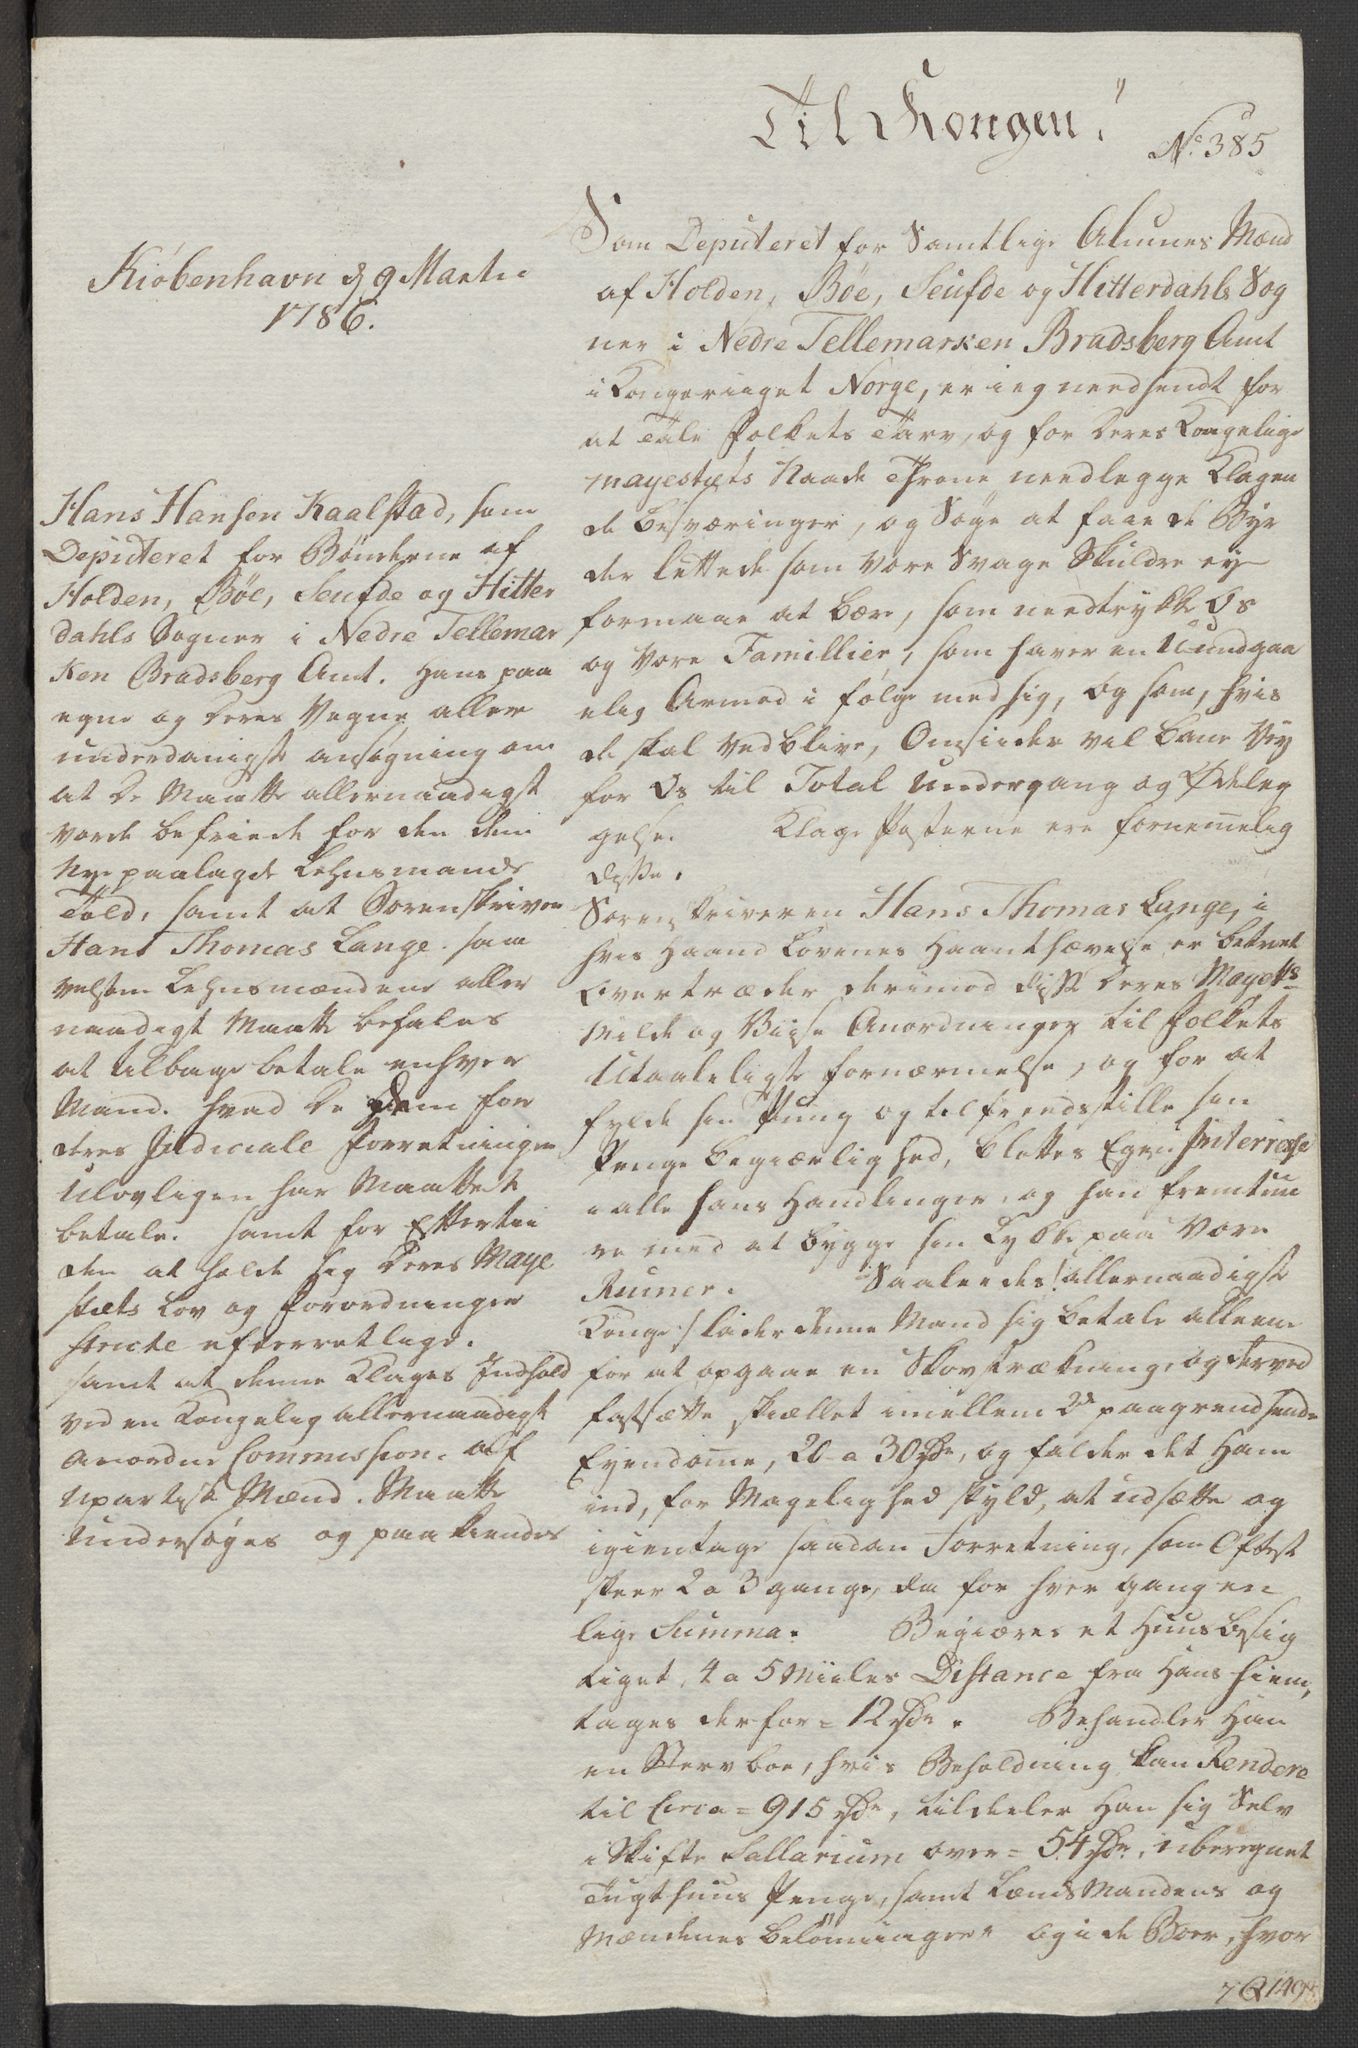 Til Kongen!
No 385
Kiöbenhavn d 9 Martii
1786.
Hans Hansen Kaalstad, som
Deputeret for Bönderne af
Holden, Böe, Seufde og Hitter
dahls Sogner i Nedre Tellemar
ken Bradsberg Amt. Hans paa
egne og deres Vegne aller
underdanigste ansögning om
at De Maatte allernaadigst
vorde befriede for den dem
Nye paalagde Lehnsmands
Told, samt at Sorenskriver
Hans Thomas Lange. saa
velsom Lehnsmændene aller
naadigst Maatte befales
at tilbage betale enhver
Mand. hvad De Dem for
deres Judiciale Forretninger
Ulovligen har Maattet
betale. samt for Efterti
den at holde sig Deres Maye
stæts Lov og Forordninger
stricte efterrettlige.
samt at denne Klages Indhold
ved en Kongelig allernaadigst
anordnet Commission. af
upartiske Mænd. Maatte
undersöges og paakiendes
Som Deputeret for Samtlige Almues Mænd
af Holden, Böe, Seufde og Hitterdahls Sog
ner i Nedre Tellemarken Bradsberg Amt
i Kongeriiget Norge, er ieg nedsendt for
at Tale Folkets Tarv, og for Deres Kongelige
Mayestæts Naade Throne needlegge Klagen
de besværinger, og Söge at faae de Byr
der lettede som vore Svage Skuldre ey
formaae at bære, som nedtrykke Os
og Vore Famillier, som haver en Uundgaa
elig Armod i fölge med sig, Og som, hvis
de skal vedblive, Omsiider vil bane Vey
for Os til Total Undergang og Ödeleg
gelse. Klage Posterne ere fornem̄elig
disse.
Sorenskriveren Hans Thomas Lange, i
hvis Haand Lovenes Haanthævelse er betroet
Overtræder derimod disse Deres Mayets
Milde og Viise Anordninger til Folkets
Utaaleligste fornærmelse, og for at
fylde sin Pung og tilfredsstille sin
Penge begiærlighed, Blottes Egen Interresse
i alle hans Handlinger, og han fremtuu
re med at bygge sin Lykke paa Vore
Ruiner. Saaleedes! allernaadigste
Konge!/ lader denne Mand sig betale alleene
for at opgaae en Skovstrækning, og derved
fastsætte skiællet imellem 2de paagrendsende
Eyendom̄e, 20 a 30 rdr, og falder det Ham
ind, for Magelighed skyld, at udsætte og
igientage saadan Forretning, som Oftest
skeer 2 a 3 gange, da for hver gang en
lige Summa. Begiæres et Huus besig
tiget, 4 a 5 Miiles Distance fra Hans hiem,
tages derfor = 12 rdr. Behandler Han
en Stervboe, hvis Beholdning kan Rendere
til Circa = 915 rdr, tildeeler Han sig Selv
i Skifte Sallarium over = 54 rdr, uberegnet
Tugthuus Penge, samt Lænsmandens og
Mændenes belönninger. og i de Boer, hvor